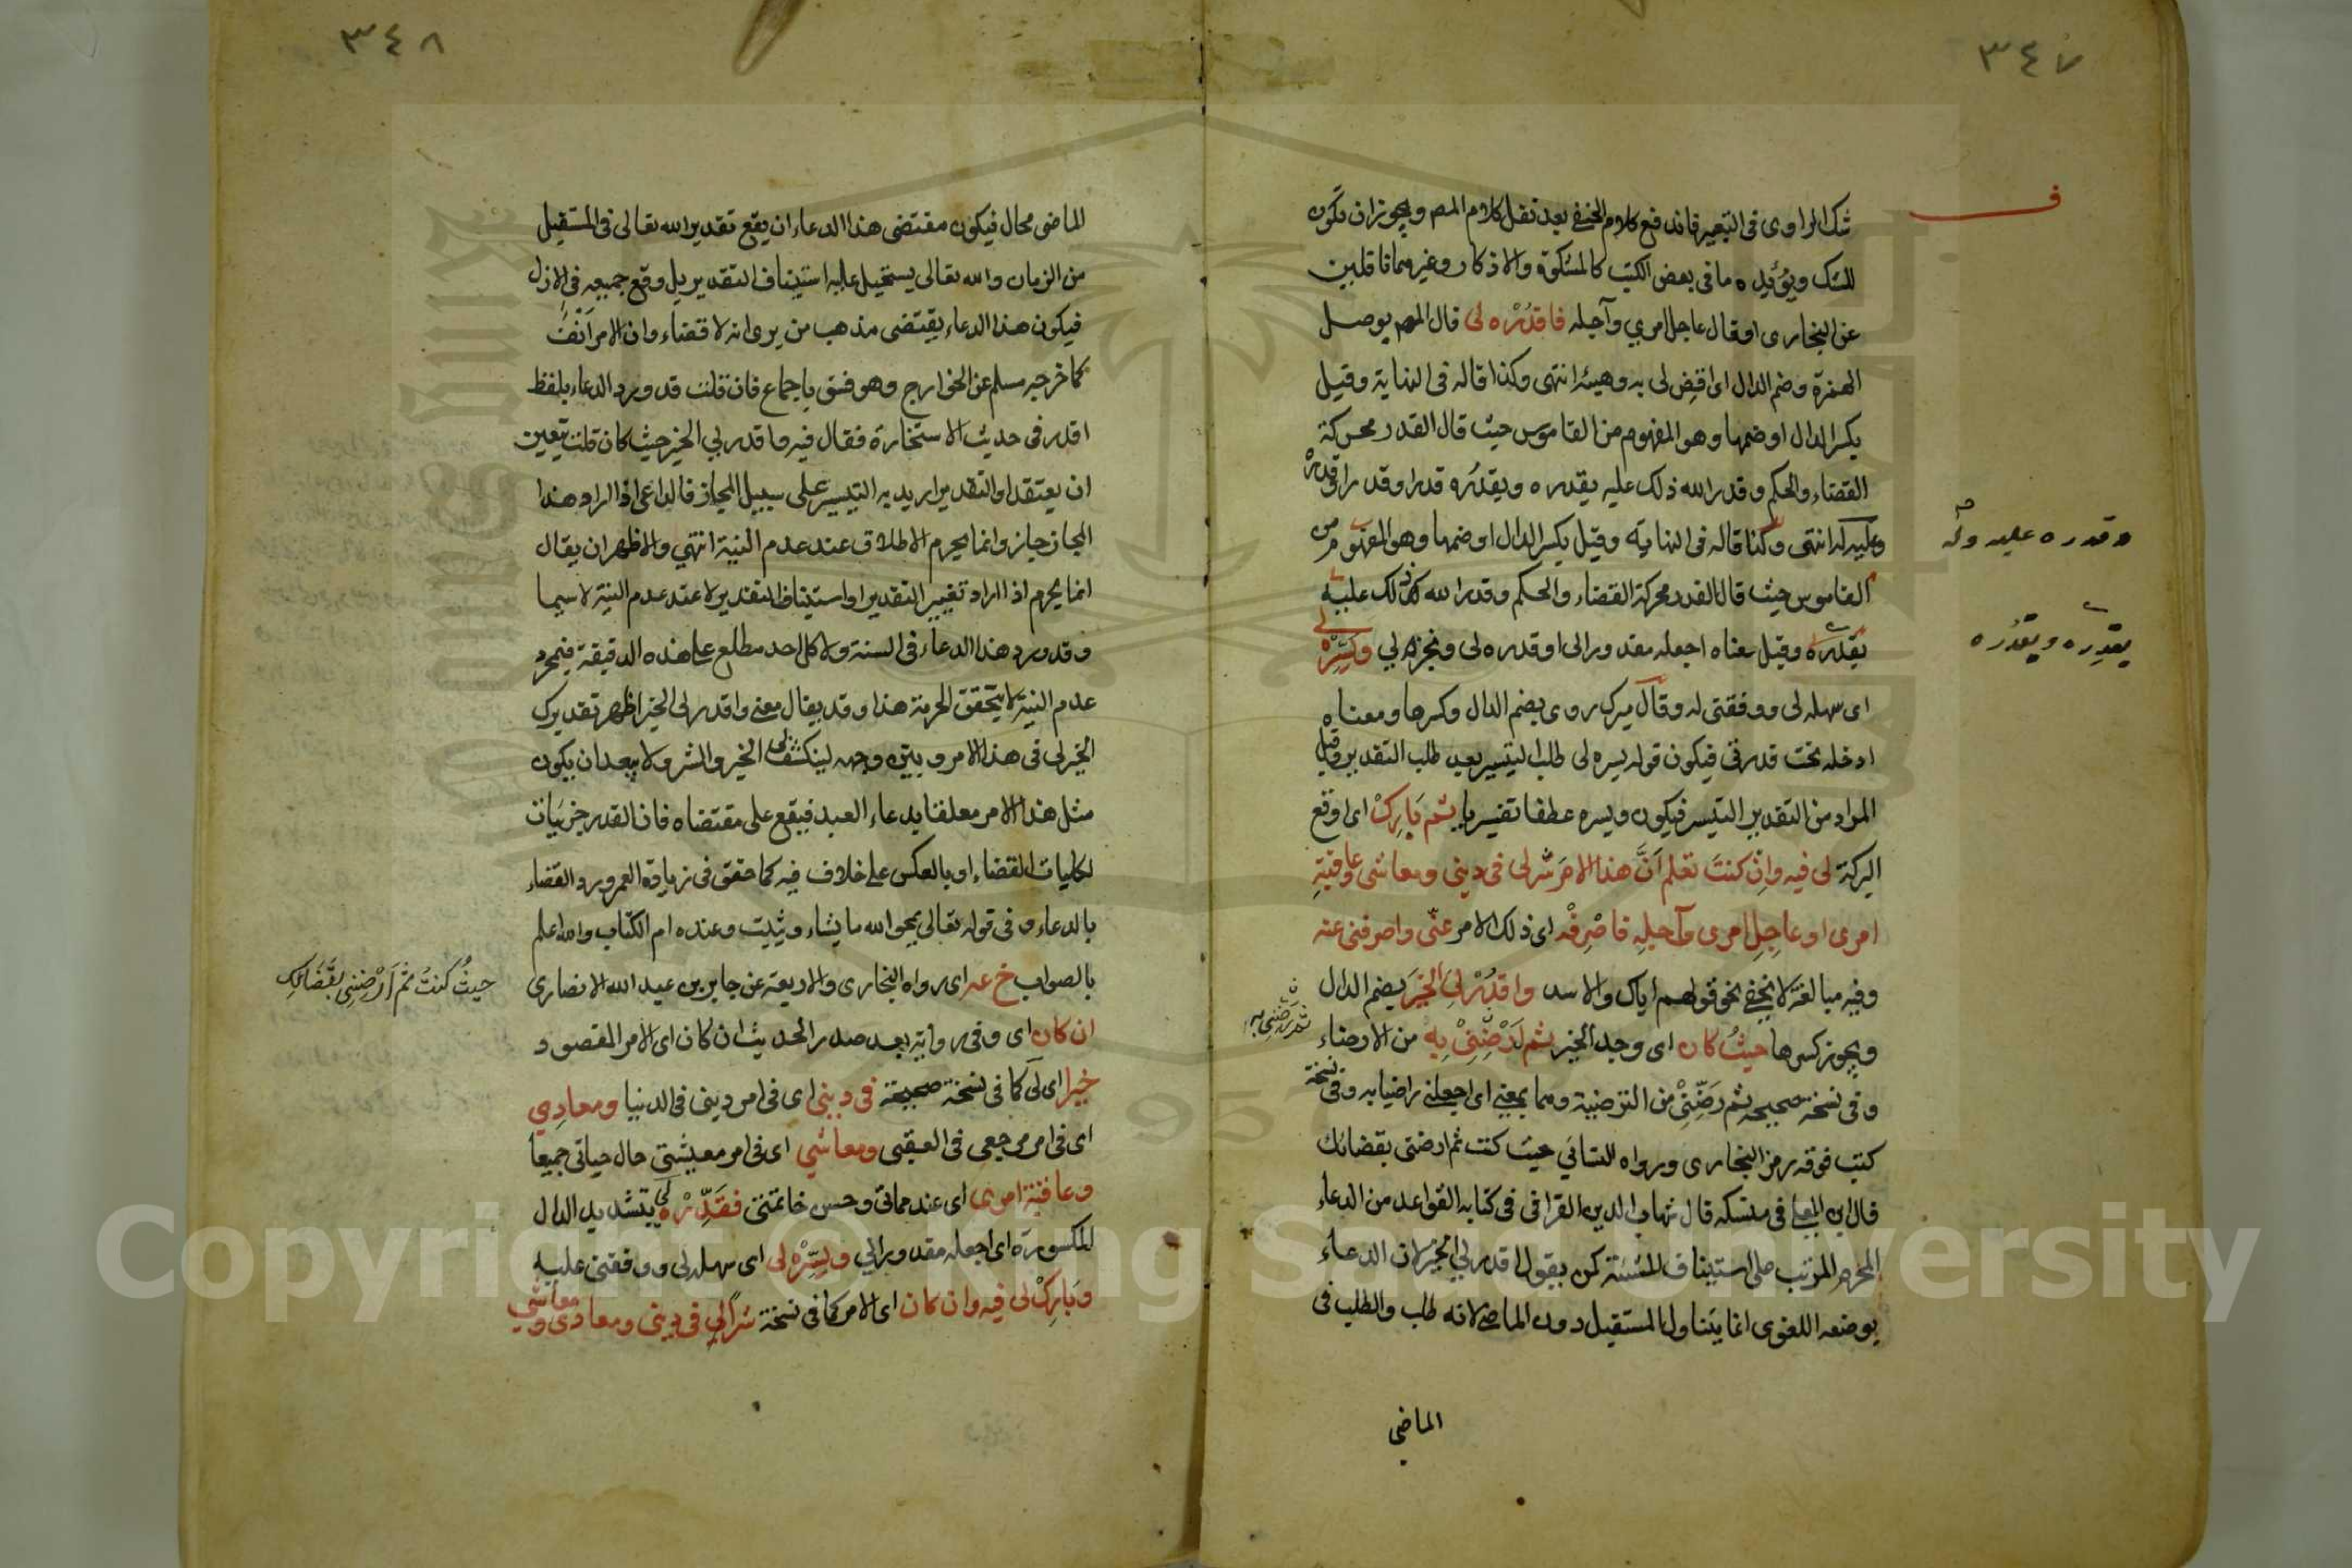 ٣٤٧
ف
شك الراوى فى التعبير فاندفع كلام الحنفى بعد نقل كلام المص ويجوز ان تكون
للشك ويؤيده ما فى بعض الكتب كالمشكوة والاذكار وغيرهما
عن البخارى او قال عاجل امري وآجله فاقدُرْه لى قال المص بوصل
الهمزة وضم الدال اى اقض لى به وهيئه انتهى وكذا قاله فى النهاية وقيل
بكسر الدال او ضمها وهو المفهوم من القاموس حيث قال القدر محركة
القضاء والحكم وقدر الله ذلك عليه يقدره ويقدُره قدرا وقدرا وقدره
وعليه له انتهى وكذا قاله فى النهاية وقيل بكسر الدال او ضمها وهو المفهوم من
القاموس حيث قال القدر محركة القضاء والحكم وقدر الله ذلك عليه
يقدره وقيل معناه اجعله مقدورا لى او قدره لى ونجزه لي ويَسِّرْه لى
اى سهله لى ووفقنى له وقال ميرك روى بضم الدال وكسرها ومعناه
ادخله تحت قدرتى فيكون قوله يسره لى طلب التيسير بعد طلب التقدير وقيل
المراد من التقدير التيسير فيكون ويسره عطفا تفسيريا ثم بَارِكْ اى اوقع
البركة لى فيه وان كنتَ تعلم أنَّ هذا الامرَ شر لى فى دينى ومعاشى وعاقبةِ
امرى او عاجِلِ امرى وآجلِهِ فاصْرِفْه اى ذلك الامر عنّى واصرفنى عنه
وفيه مبالغة لا تخفى نحو قولهم اياك والاسد واقدُرْ لِىَ الخيرَ بضم الدال
ويجوز كسرها حيثُ كان اى وجد الخير ثم أَرْضِنِىْ بِه من الارضاء
وفى نسخة صحيحة ثم رَضِّنِىْ من الترضية وهما بمعنى اى اجعلنى راضيا به وفى نسخة
كتب فوقه رمز البخارى ورواه النسائي حيث كنت ثم ارضنى بقضائك
قال ابن فى منسكه قال شهاب الدين القرافى فى كتابه القواعد من الدعاء
المحرم المرتب على استيناف المشئة كمن يقول اقدر لي الخير لان الدعاء
بوضعه اللغوى انما يتناول المستقبل دون الماضى لانه طلب والطلب فى
الماضى
وقدره عليه وله
يقدِره ويقدُره
ثم رضنى به
٣٤٨
الماضى محال فيكون مقتضى هذا الدعاء ان يقع تقدير الله تعالى فى المستقبل
من الزمان والله تعالى يستحيل عليه استيناف التقدير بل وقع جميعه فى الازل
فيكون هذا الدعاء يقتضى مذهب من يرى انه لا قضاء وان الامر أُنُفٌ
كما خرجه مسلم عن الخوارج وهو فسق باجماع فان قلت قد ورد الدعاء بلفظ
اقدر فى حديث الاستخارة فقال فيه واقدر لي الخير حيث كان قلت يتعين
ان يعتقد ان التقدير اريد به التيسير على سبيل المجاز فالداعى اذا اراد هذا
المجاز جاز وانما يحرم الاطلاق عند عدم النية انتهي والاظهر ان يقال
انما يحرم اذا اراد تغيير التقدير او استيناف التقدير لا عند عدم النية لا سيما
وقد ورد هذا الدعاء فى السنة ولا كل احد مطلع على هذه الدقيقة فبمجرد
عدم النية لا يتحقق الحرمة هذا وقد يقال معنى واقدر لى الخير اظهر تقديرك
الخير لى فى هذا الامر وبيّن وجهه لينكشف لى الخير والشر ولا يبعد ان يكون
مثل هذا الامر معلقا بدعاء العبد فيقع على مقتضاه فان القدر جزئيات
لكليات القضاء او بالعكس على خلاف فيه كما حقق فى زيادة العمر ورد القضاء
بالدعاء وفى قوله تعالى يمحو الله ما يشاء ويثبت وعنده ام الكتاب والله اعلم
بالصواب خ عه اى رواه البخارى والاربعة عن جابر بن عبد الله الانصارى
ان كان اى وفى رواية بعد صدر الحديث ان كان اى الامر المقصود
خيرا اى لى كما فى نسخة صحيحة فى دينى اى فى امر دينى فى الدنيا ومعادِي
اى فى امر مرجعى فى العقبى ومعاشي اى فى امر معيشتى حال حياتى جميعا
وعاقبة امرى اى عند مماتى وحسن خاتمتى فقَدِّرْه لى بتشديد الدال
المكسورة اى اجعله مقدورا لي ويَسِّرْه لى اى سهله لى ووفقنى عليه
وبَارِكْ لى فيه وان كان اى الامر كما فى نسخة شرًّا لى فى دينى ومعادى ومعاشي
حيثُ كنتُ ثم أَرْضِنِى بقَضَائِك
Copyright © King Saud University